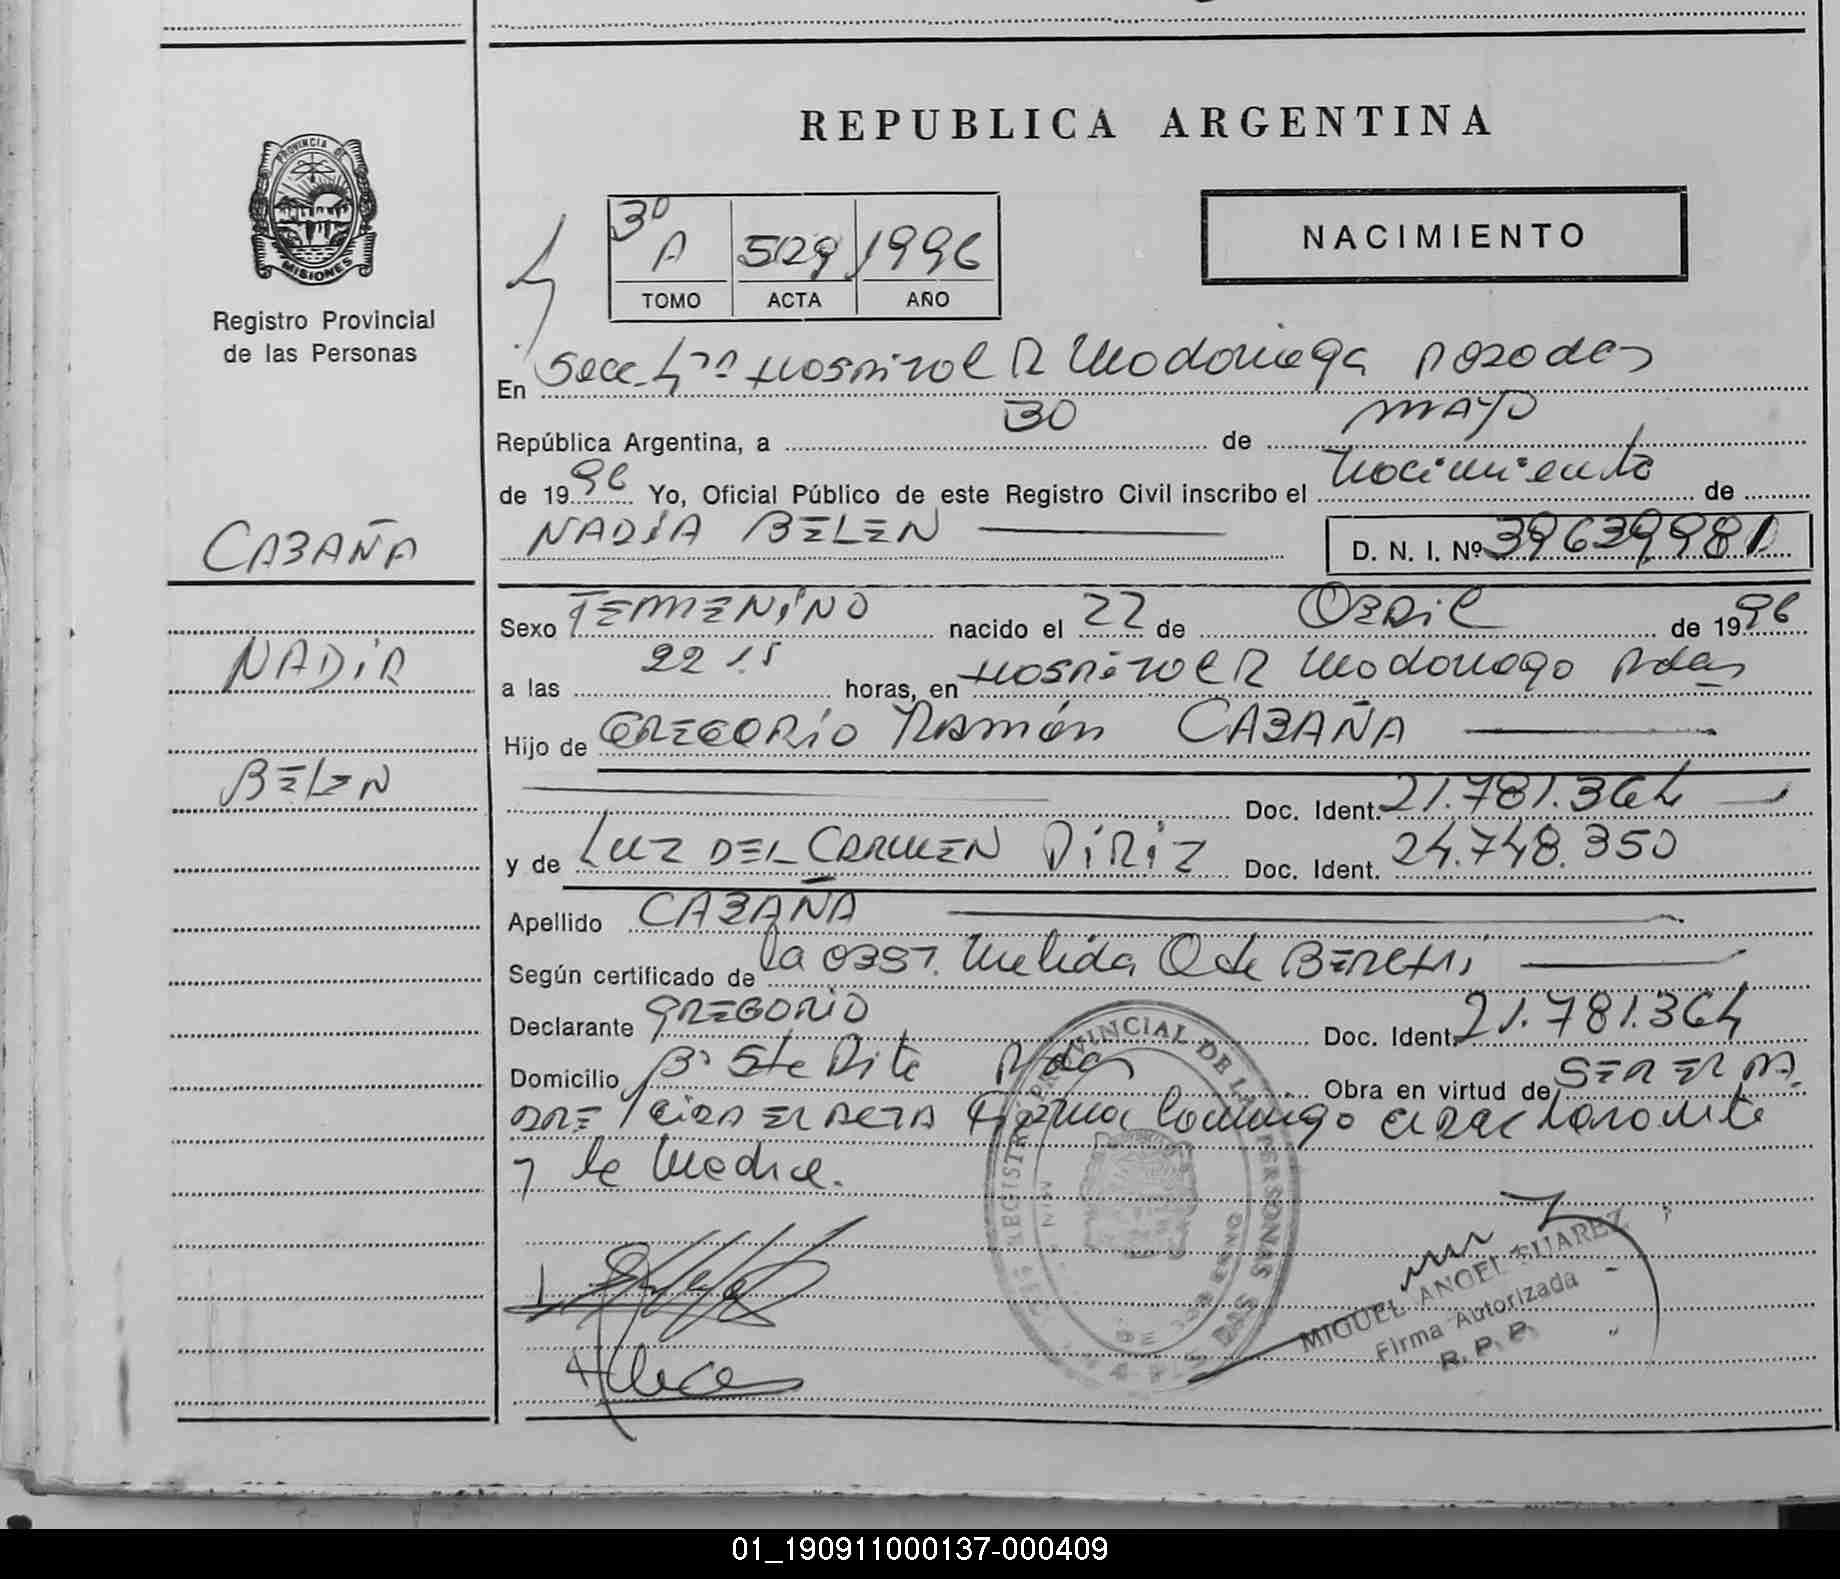 REPUBLICA ARGENTINA
PROVINCIA DE
MISIONES
Registro Provincial
de las Personas
3º
A 529 1996
TOMO ACTA AÑO
NACIMIENTO
En Secc. 4ta Hospital R Madariaga Posadas
República Argentina, a 30 de mayo
de 1996 Yo, Oficial Público de este Registro Civil inscribo el nacimiento de
NADIA BELEN
D. N. I. Nº 39639981
CABAÑA
NADIA
BELEN
Sexo FEMENINO nacido el 22 de Abril de 1996
a las 22 15 horas, en Hospital R Madariaga Pdas
Hijo de GREGORIO Ramón CABAÑA
Doc. Ident. 21.781.364
y de LUZ DEL CARMEN Doc. Ident. 24.748.350
Apellido CABAÑA
Según certificado de la OBST. de
Declarante GREGORIO Doc. Ident. 21.781.364
Domicilio Bº Sta Rita Pdas Obra en virtud de SER EL PA
DRE EL ACTA Firma Conmigo el declarante
y la Madre.
REGISTRO PROVINCIAL DE LAS PERSONAS
MIGUEL ANGEL SUAREZ
Firma Autorizada
R. P. P.
01_190911000137-000409